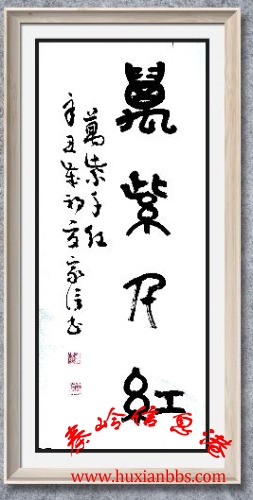 萬紫千红
萬紫千红
辛丑歲初夏家信書
秦岭信息港
www.huxianbbs.com